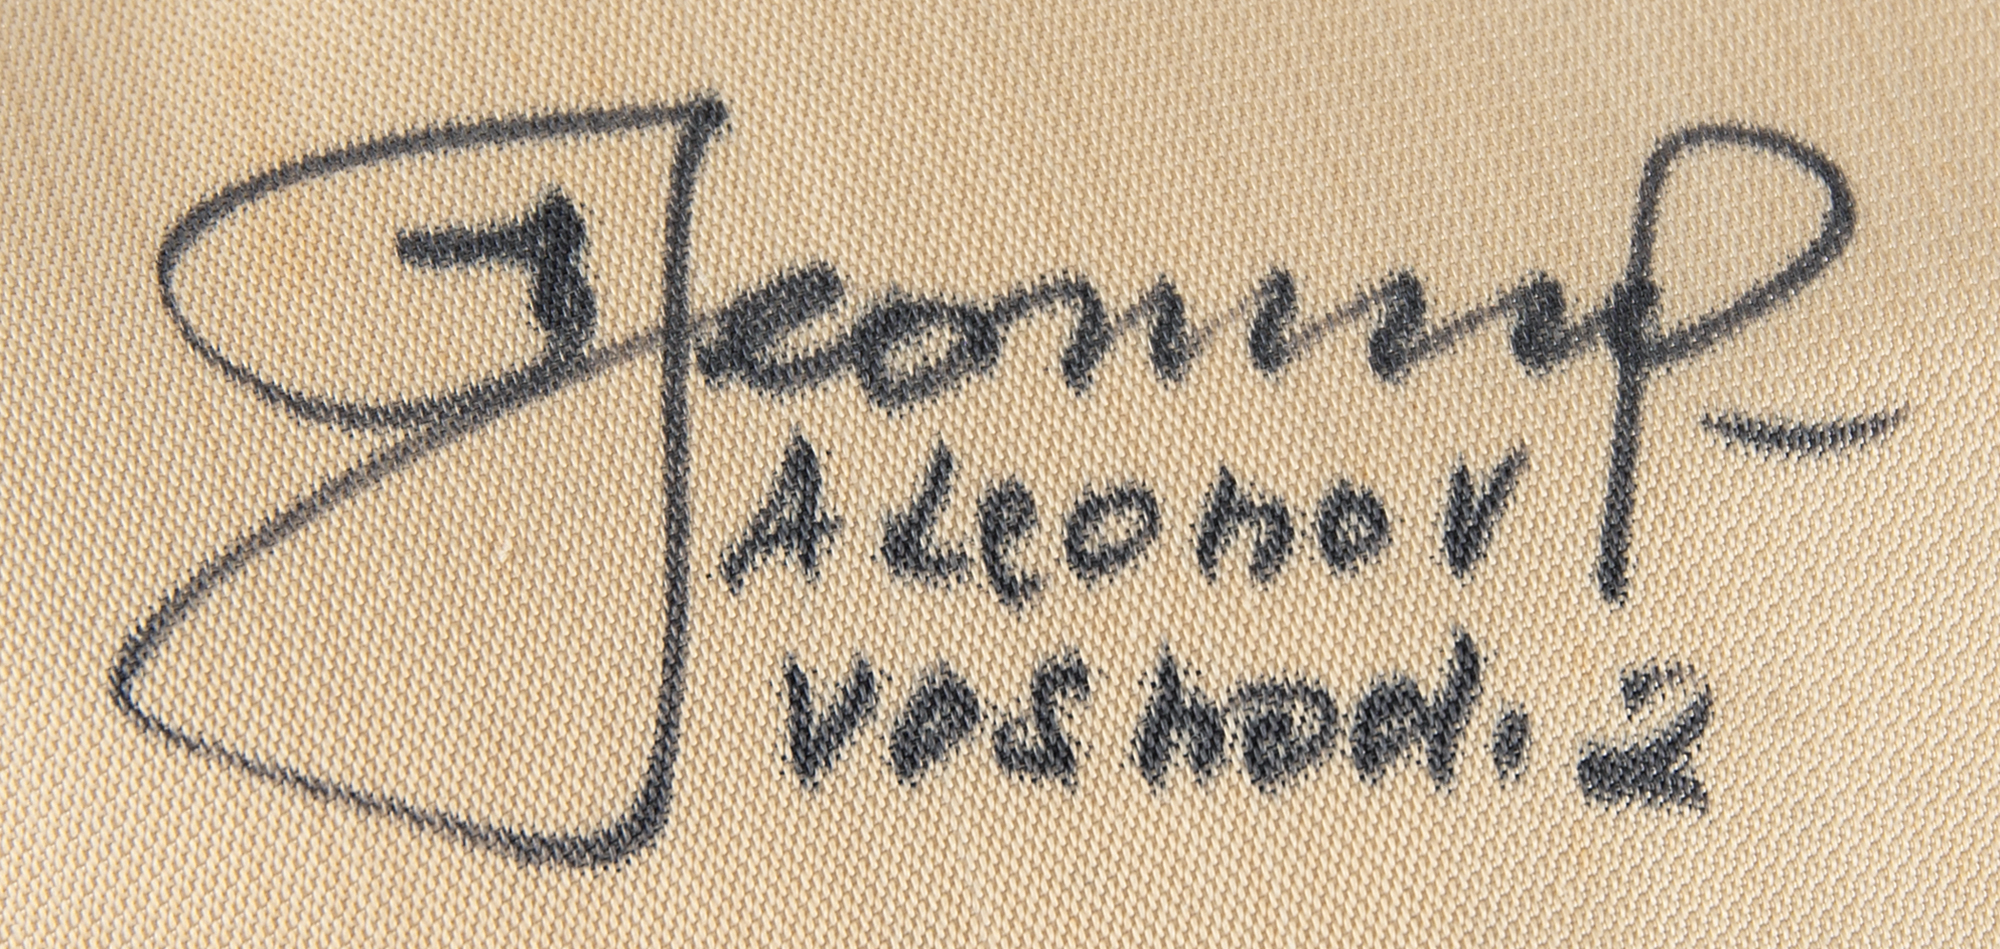 Леонов
A Leonov
Voshod. 2